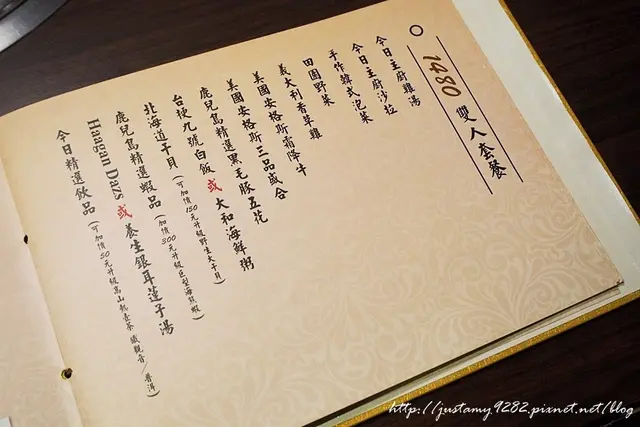 2480 雙人套餐
今日主廚雞湯
今日主廚沙拉
手作韓式泡菜
田園野菜
義大利香草雞
美國安格斯霜降牛
美國安格斯三品盛合
鹿兒島精選黑毛豚五花
台梗九號白飯 或 大和海鮮粥
北海道干貝 (可加價150元升級野生大干貝)
鹿兒島精選蝦品 (加價300元升級巨型海熊蝦)
Haagan Dazs 或 養生銀耳蓮子湯
今日精選飲品 (可加價50元升級高山凱臺茶 鐵觀音/普洱)
http://justamy9282.pixnet.net/blog